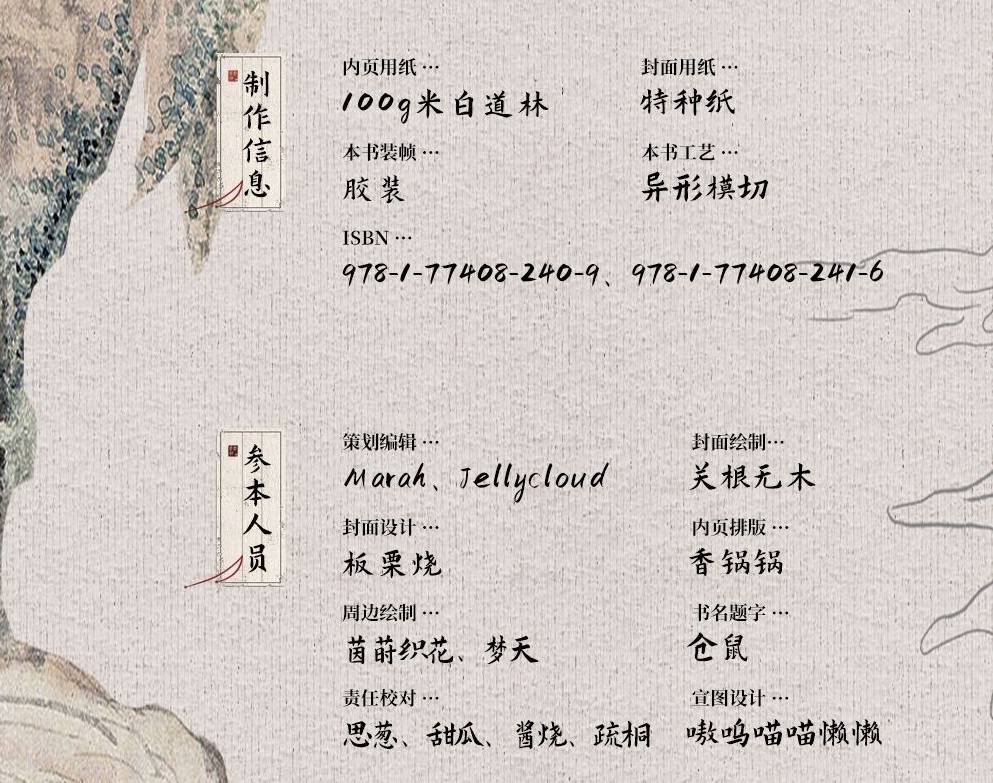 制作信息
内页用纸 …
100g米白道林
封面用纸 …
特种纸
本书装帧 …
胶装
本书工艺 …
异形模切
ISBN …
978-1-77408-240-9、978-1-77408-241-6
参本人员
策划编辑 …
Marah、Jellycloud
封面绘制…
关根无木
封面设计 …
板栗烧
内页排版 …
香锅锅
周边绘制 …
茵莳织花、梦天
书名题字 …
仓鼠
责任校对 …
思葱、甜瓜、酱烧、疏桐
宣图设计 …
嗷呜喵喵懒懒